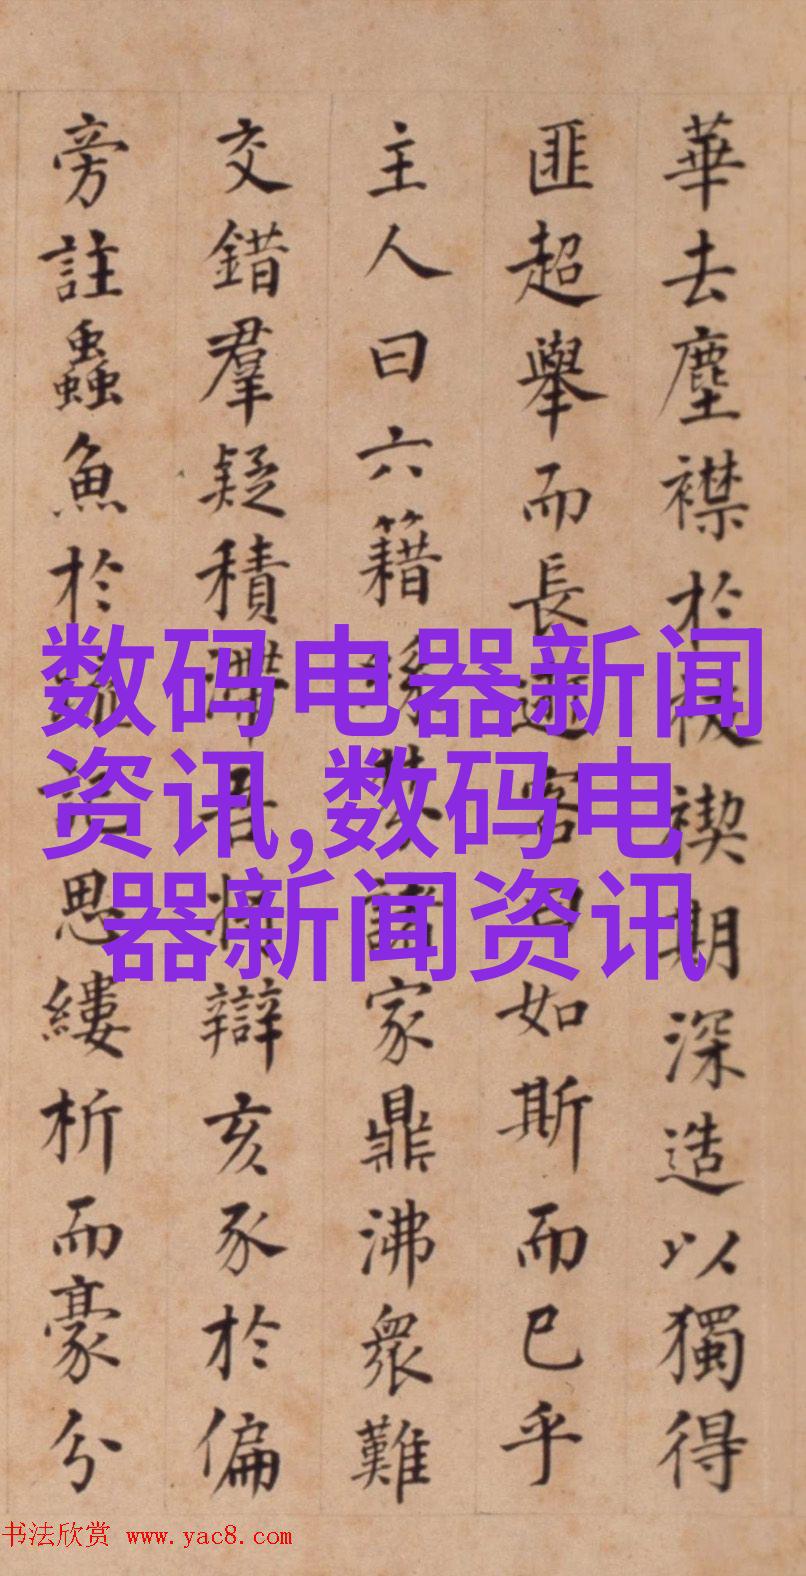 華去塵襟於禊期深造以獨得
匪超舉而長客曰如斯而已乎
主人曰六籍諸家鼎沸衆難
交錯羣疑積滯吾將辯亥豕於偏
旁註蟲魚於思縷析而豪分
数码电器新闻
资讯,数码电
器新闻资讯
书法欣赏 www.yac8.com